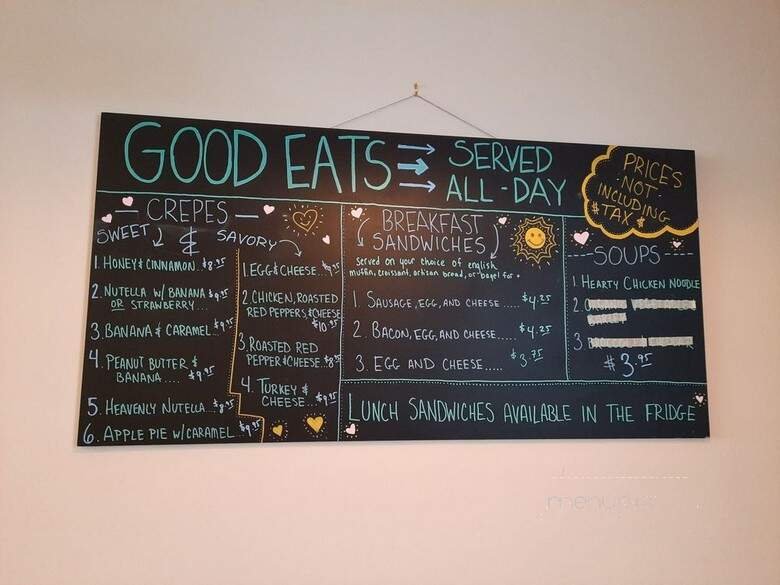 GOOD EATS → SERVED
ALL-DAY
PRICES
NOT
INCLUDING
$TAX$
— CREPES —
SWEET & SAVORY
1. HONEY & CINNAMON. $8.95
2. NUTELLA W/ BANANA $9.95
OR STRAWBERRY...
3. BANANA & CARAMEL. $9.95
4. PEANUT BUTTER &
BANANA.... $9.95
5. HEAVENLY NUTELLA... $8.95
6. APPLE PIE W/CARAMEL $9.95
1. EGG & CHEESE...
2. CHICKEN, ROASTED
RED PEPPERS, & CHEESE
$10.95
3. ROASTED RED
PEPPER & CHEESE..
4. TURKEY &
CHEESE... $9.95
BREAKFAST
SANDWICHES
Served on your choice of english
muffin, croissant, artisan bread, or bagel for +
1. SAUSAGE, EGG, AND CHEESE .... $4.25
2. BACON, EGG, AND CHEESE..... $4.25
3. EGG AND CHEESE..... $3.75
---SOUPS---
1. HEARTY CHICKEN NOODLE
2.
3.
$3.95
LUNCH SANDWICHES AVAILABLE IN THE FRIDGE